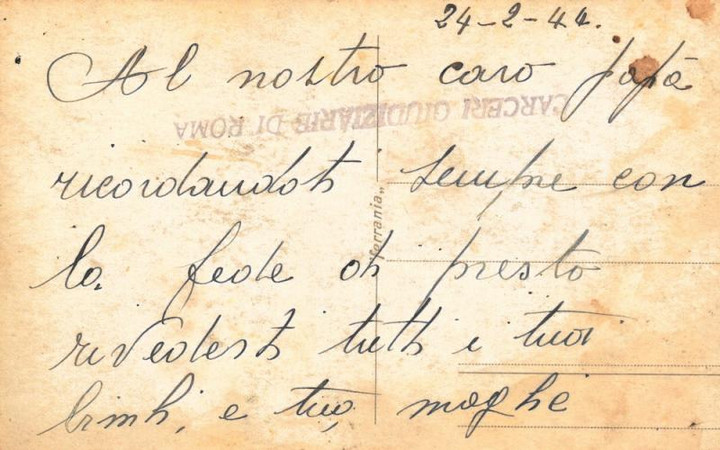 24-2-44.
Al nostro caro papà
CARCERI GIUDIZIARIE DI ROMA
ricordandoti sempre con
"ferrania"
la fede di presto
rivederti tutti i tuoi
bimbi, e tua, moglie